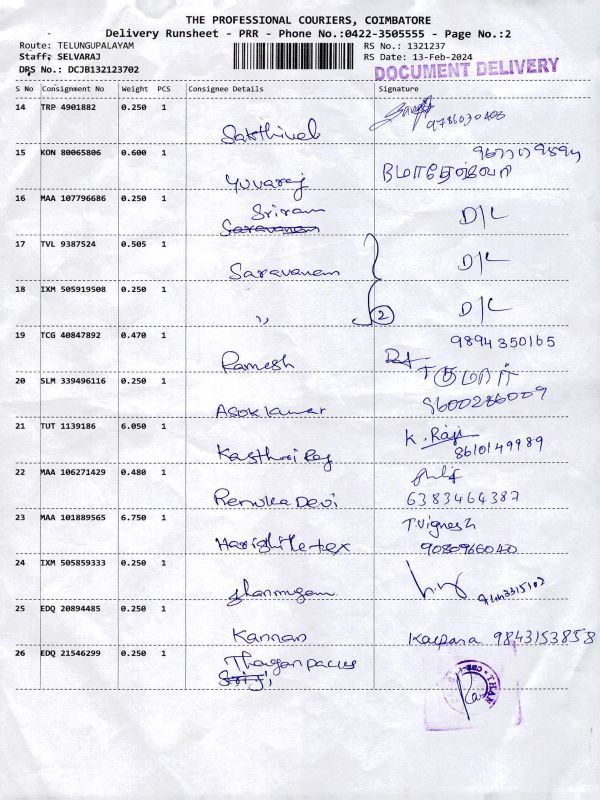 THE PROFESSIONAL COURIERS, COIMBATORE
Delivery Runsheet - PRR - Phone No.:0422-3505555 - Page No.:2
Route: TELUNGUPALAYAM RS No.: 1321237
Staff: SELVARAJ RS Date: 13-Feb-2024
DRS No.: DCJB132123702 DOCUMENT DELIVERY
S No Consignment No Weight PCS Consignee Details Signature
14 TRP 4901882 0.250 1
Sakthivel
15 KON 80065806 0.600 1
Yuvaraj
16 MAA 107796686 0.250 1 Sriram D/L
Saravanam
17 TVL 9387524 0.505 1 D/L
Saravanam
18 IXM 505919508 0.250 1 D/L
,, 2
19 TCG 40847892 0.470 1 9894350165
Ramesh
20 SLM 339496116 0.250 1 குமார்
Asokkumar 9600286009
21 TUT 1139186 6.050 1 K. Raji
Kasthuri Raj 8610149989
22 MAA 106271429 0.480 1
Renuka Devi 6383464387
23 MAA 101889565 6.750 1 T.Vignesh
9080966040
24 IXM 505859333 0.250 1
Shanmugam
25 EDQ 20894485 0.250 1
Kannan Kalpana 9843153858
26 EDQ 21546299 0.250 1